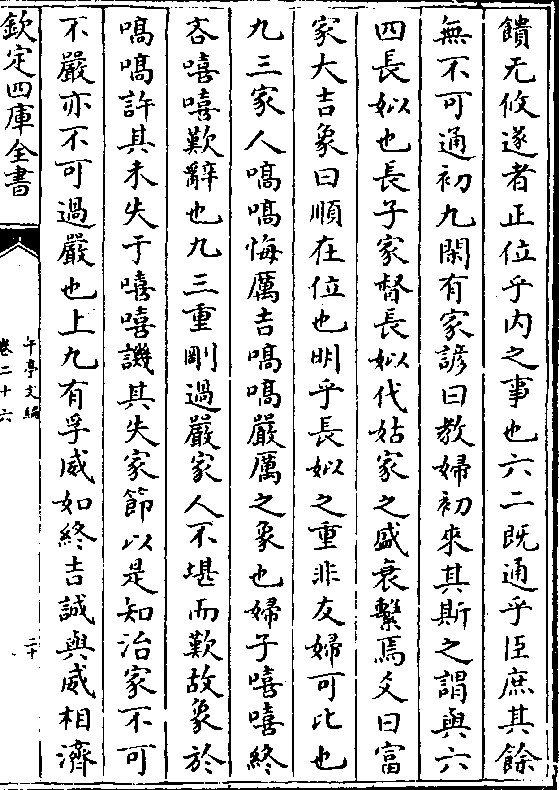 饋无攸遂者正位乎内之事也六二既通乎臣庶其餘
無不可通初九閑有家諺曰教婦初來其斯之謂與六
四長姒也長子家督長姒代姑家之盛衰繫焉爻曰富
家大吉象曰順在位也明乎長姒之重非友婦可比也
九三家人嗃嗃悔厲吉嗃嗃嚴厲之象也婦子嘻嘻終
吝嘻嘻歎辭也九三重剛過嚴家人不堪而歎故象於
嗃嗃許其未失于嘻嘻譏其失家節以是知治家不可
不嚴亦不可過嚴也上九有孚威如終吉誠與威相濟
欽定四庫全書
午亭文編
卷二十六
二十